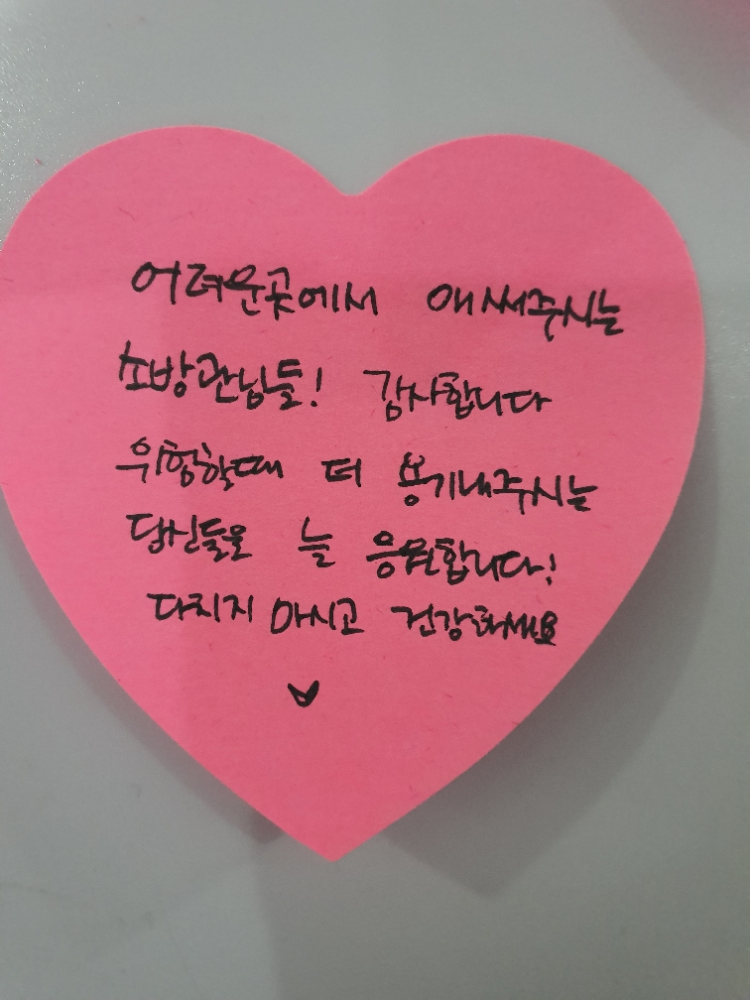 어려운곳에서 애써주시는
소방관님들! 감사합니다
위험할때 더 용기내주시는
당신들을 늘 응원합니다!
다치지 마시고 건강하세요